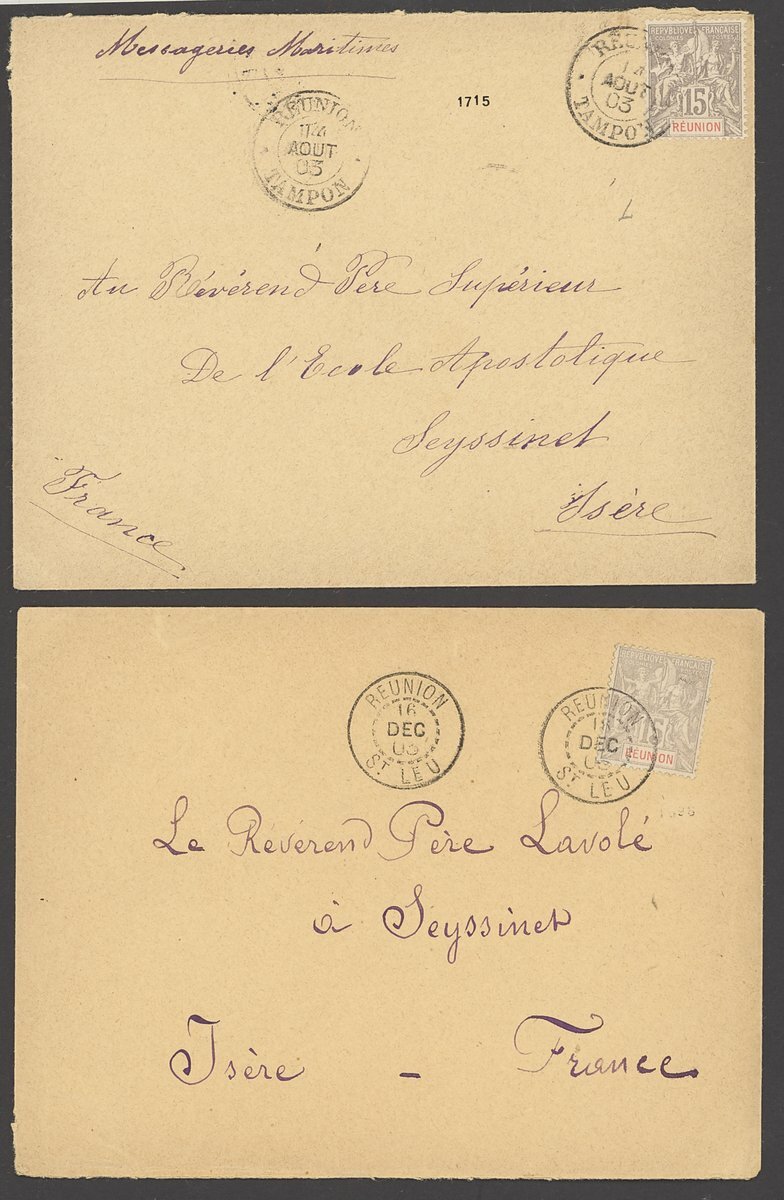 Messageries Maritimes
RÉUNION
14
AOUT
03
TAMPON
1715
14
AOUT
03
TAMPON
REPUBLIQUE FRANÇAISE
COLONIES POSTES
15
RÉUNION
Au Révérend Père Supérieur
De l'Ecole Apostolique
Seyssinet
Isère
France
REUNION
16
DEC
03
ST LEU
REUNION
DEC
ST LEU
REPUBLIQUE FRANÇAISE
15
RÉUNION
Le Révérend Père Lavolé
à Seyssinet
Isère - France